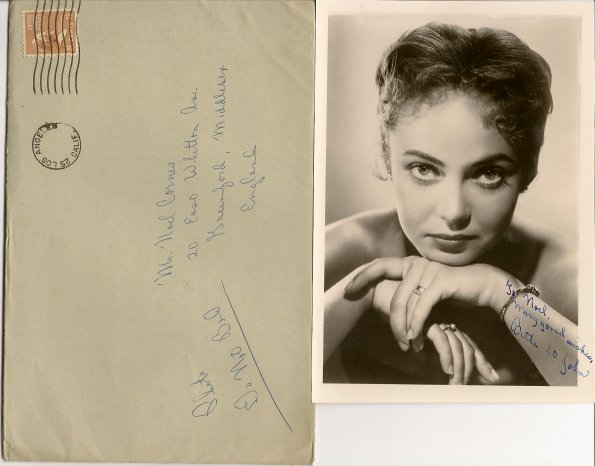 LOS ANGELES
25
CALIF.
Mr. Noel Cornes
20 East Whitton Ave.
Greenford, Middlesex
England
Photo
Do Not Bend
To Noel,
Many good wishes,
Betta St John